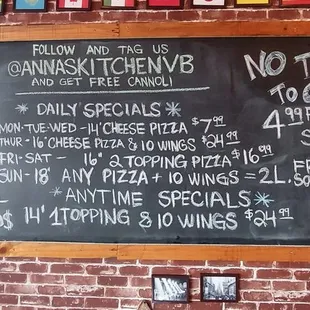 FOLLOW AND TAG US
@ANNASKITCHENVB
AND GET FREE CANNOLI
DAILY SPECIALS
MON-TUE-WED - 14" CHEESE PIZZA $7.99
THUR - 16" CHEESE PIZZA & 10 WINGS $24.99
FRI-SAT - 16" 2 TOPPING PIZZA $16.99
SUN - 18" ANY PIZZA + 10 WINGS = 2L.
ANYTIME SPECIALS
14" 1 TOPPING & 10 WINGS $24.99
NO
TO
4.99